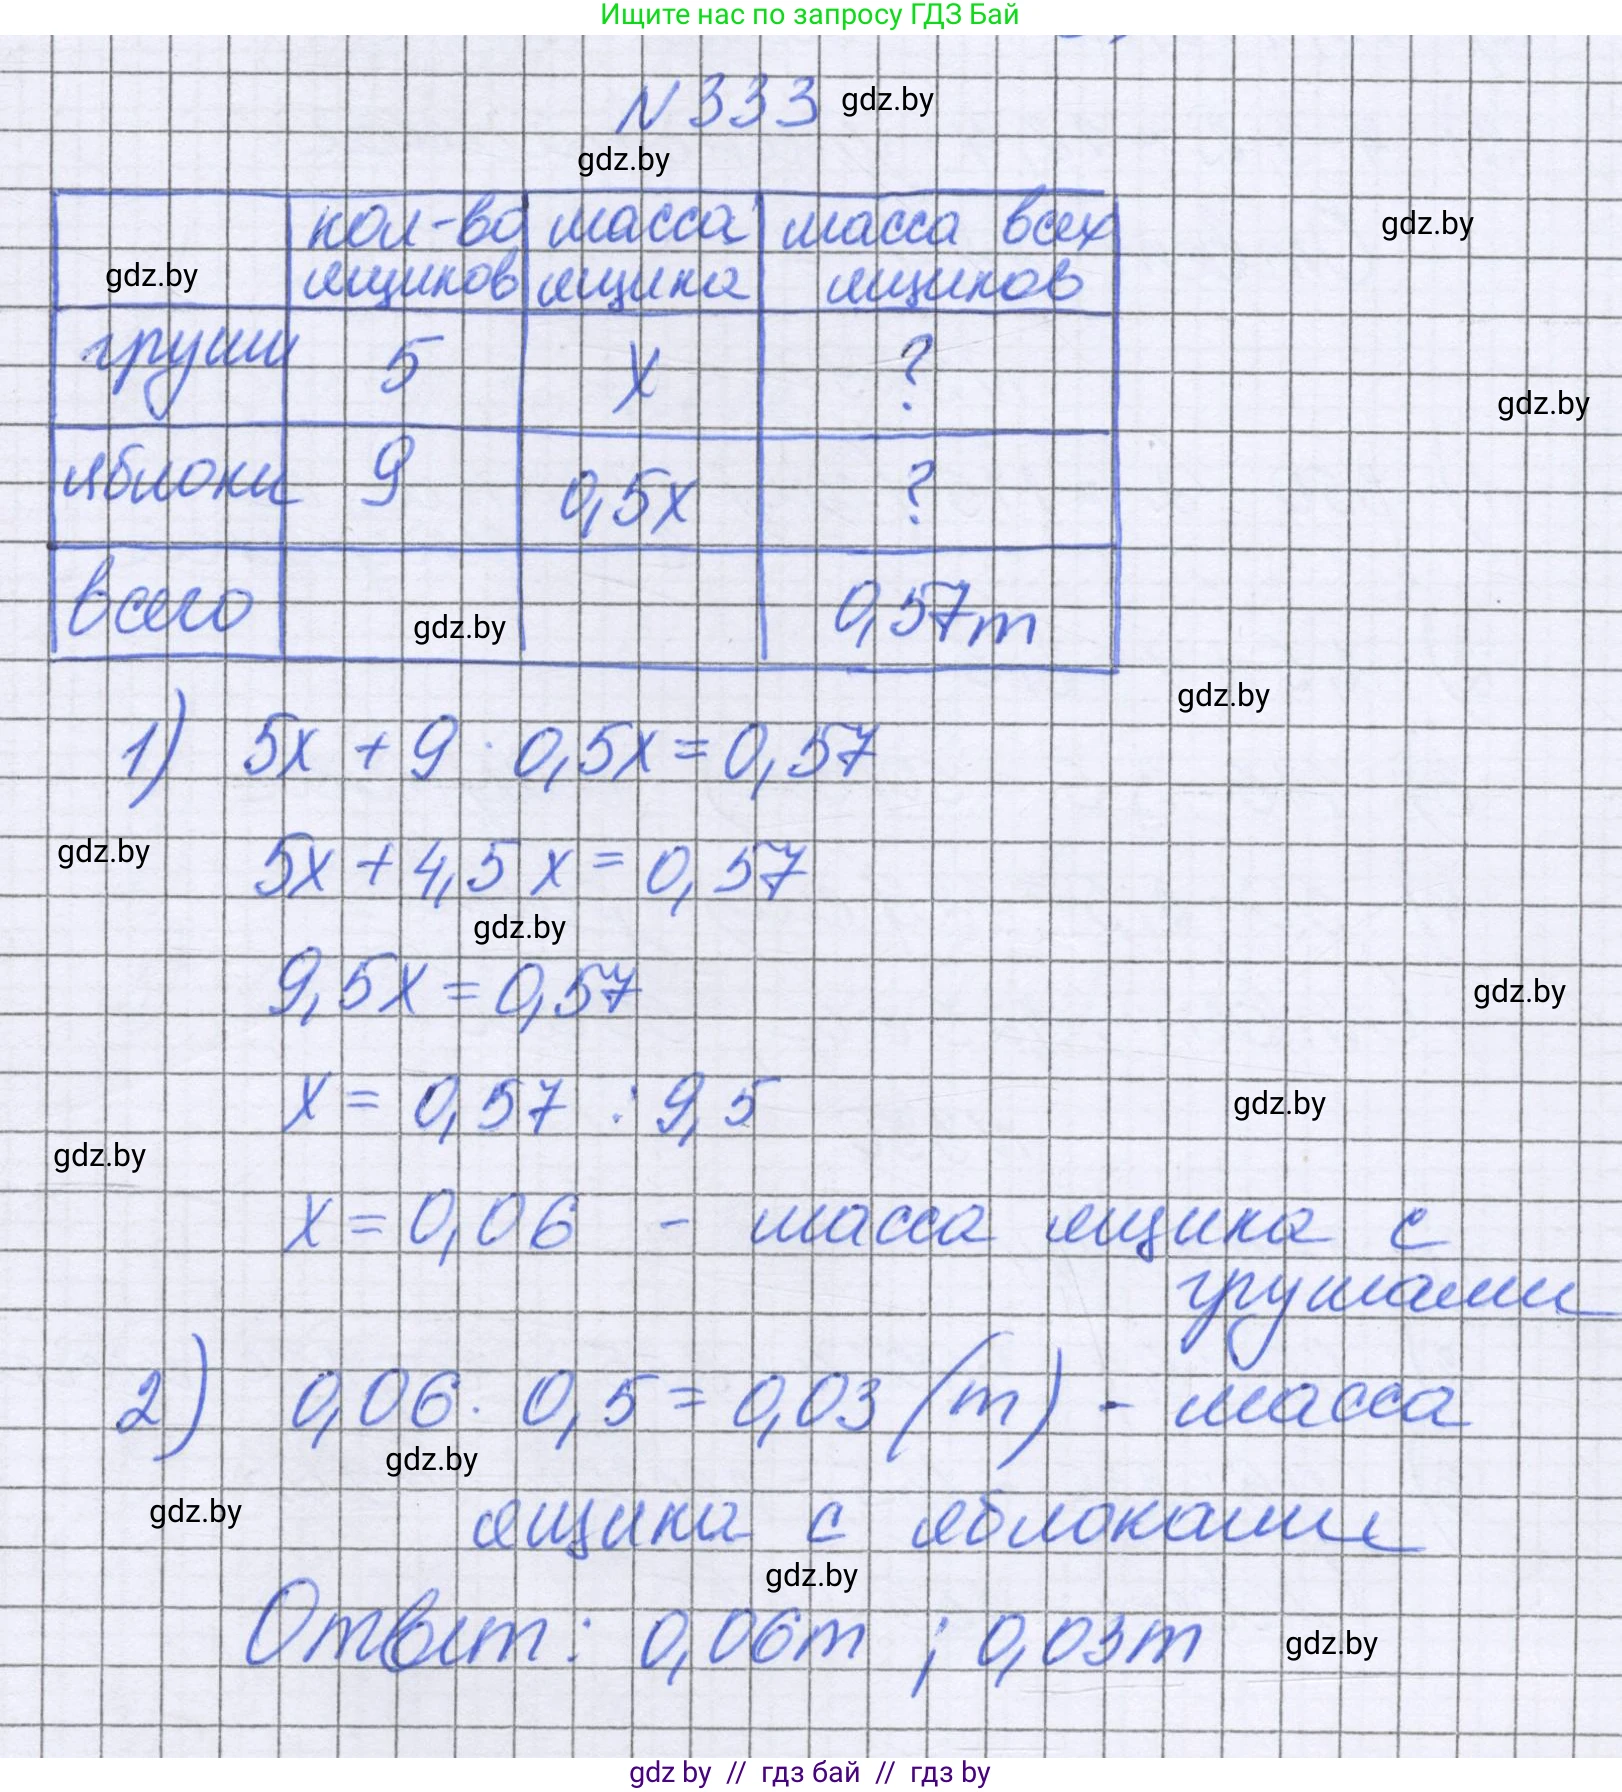 Ищите нас по запросу ГДЗ Бай
N 333 gdz.by
gdz.by
кол-во ящиков масса ящика масса всех ящиков
gdz.by
gdz.by
груши 5 x ?
gdz.by
яблоки 9 0,5x ?
всего 0,57т
gdz.by
gdz.by
1) 5x + 9 · 0,5x = 0,57
gdz.by
5x + 4,5x = 0,57
gdz.by
9,5x = 0,57
gdz.by
x = 0,57 : 9,5
gdz.by
gdz.by
x = 0,06 - масса ящика с
грушами
2) 0,06 · 0,5 = 0,03 (т) - масса
gdz.by
gdz.by
ящика с яблоками
gdz.by
Ответ: 0,06т ; 0,03т
gdz.by
gdz by // гдз бай // гдз by